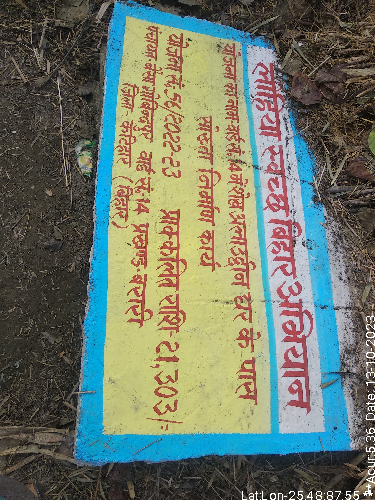 लोहिया स्वच्छ बिहार अभियान
योजना का नाम- वार्ड सं. 14 मो० अलाउद्दीन घर के पास
सोख्ता निर्माण कार्य
योजना सं. 56/2022-23 प्राक्कलित राशि- 21,303/-
पंचायत- वार्ड सं.- 14 प्रखण्ड- बरारी
जिला- कटिहार (बिहार)
LatLon-25.48:87.55
Acur-5.36 Date. 13-10-2023